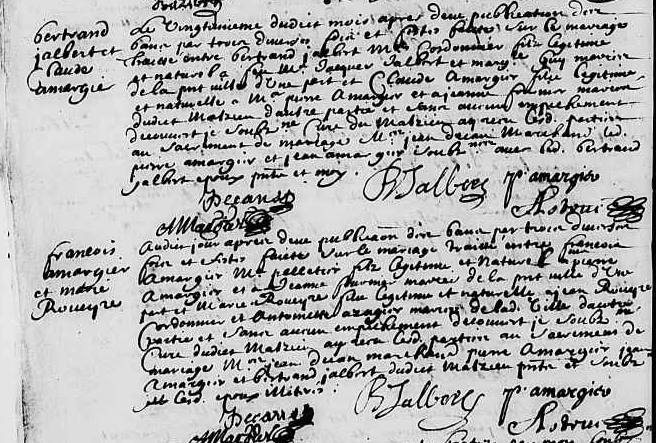 bertrand
jalbert et
Claude
amargie
Le Vingtunieme dudit mois apres deue publication des
bans par trois divers et festes faite sur le mariage
entre bertrand jalbert Me Cordonnier filz legitime
et naturel a feu Me jacques jalbert et marguerite Guy maries
de la pnt ville d'Une part et Claude Amargier fille legitime
et naturelle a Me pierre Amargier et a jeanne fournier maries
dudit Malzieu d'autre partie et sans aucun empechement
decouvert je soubz ne Cure du Malzieu ay receu lesd. parties
au sacrement de mariage Mre jean decan Marchand led.
pierre amargier et jean amargier soubz nes avec led. bertrand
jalbert epoux pnts et moy.
B Jalbert p amargier
Decan
Amargier
Astruc
francois
amargier
et marie
Roueyre
Audit jour apres deue publication des bans par trois divers
et festes faite sur le mariage traitté entre francois
Amargier Me pelletier filz legitime et naturel a pierre
Amargier et a jeanne fournier maries de la pnt ville d'Une
part et Marie Roueyre fille legitime et naturelle a jean Roueyre
Cordonnier et Antoinette maries de lad. Ville d'autre
partie et sans aucun empechement decouvert je soubz ne
Cure dudit Malzieu ay receu lesd. parties au Sacrement de
mariage Mre jean decan marchand pierre Amargier jean
Amargier et bertrand jalbert dudit Malzieu pnts et soubz
et lesd. epoux illitrés.
B Jalbert p amargier
Decan
Amargier
Astruc